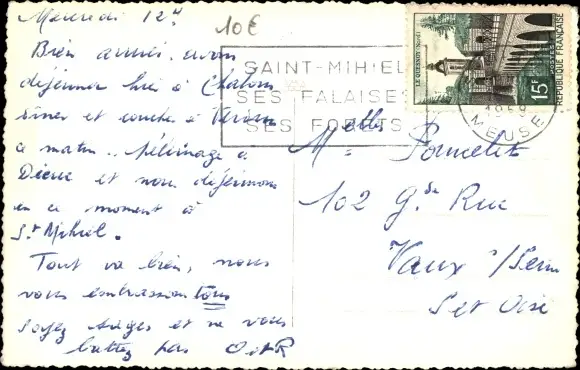 Mercredi 12h
10€
Bien arrivés, avons
déjeuner hier à Chalons
dîner et coucher à Verdun
ce matin.. pèlerinage à
Dieue et nous déjeunons
en ce moment à
St Mihiel.
Tout va bien, nous
vous embrassons tous
soyez sages et ne vous
battez pas
SAINT-MIHIEL
SES FALAISES
SES FORETS
LE QUESNOY (Nord)
15F
POSTES
REPUBLIQUE FRANÇAISE
MEUSE
Melles
102 Gde Rue
Vaux s/Seine
S et Oise